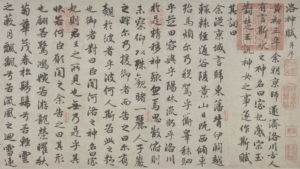 洛神賦 并序
黃初三年余朝京師還濟洛川古人
有言斯水之神名曰宓妃感宋玉
對楚王神女之事遂作斯賦
其詞曰
余從京域言歸東藩背伊闕越
轘轅經通谷陵景山日既西傾車
殆馬煩爾乃稅駕乎蘅皋秣駟
乎芝田容與乎楊林流眄乎洛川
於是精移神駭忽焉思散俯則
未察仰以殊觀睹一麗人于巖
之畔爾乃援御者而告之曰爾有
覿於彼者乎彼何人斯若此之豔
也御者對曰臣聞河洛之神名曰宓
妃則君王之所見也無乃是乎其
狀若何臣願聞之余告之曰其形
也翩若驚鴻婉若遊龍榮曜秋
菊華茂春松髣髴兮若輕雲
之蔽月飄颻兮若流風之迴雪遠